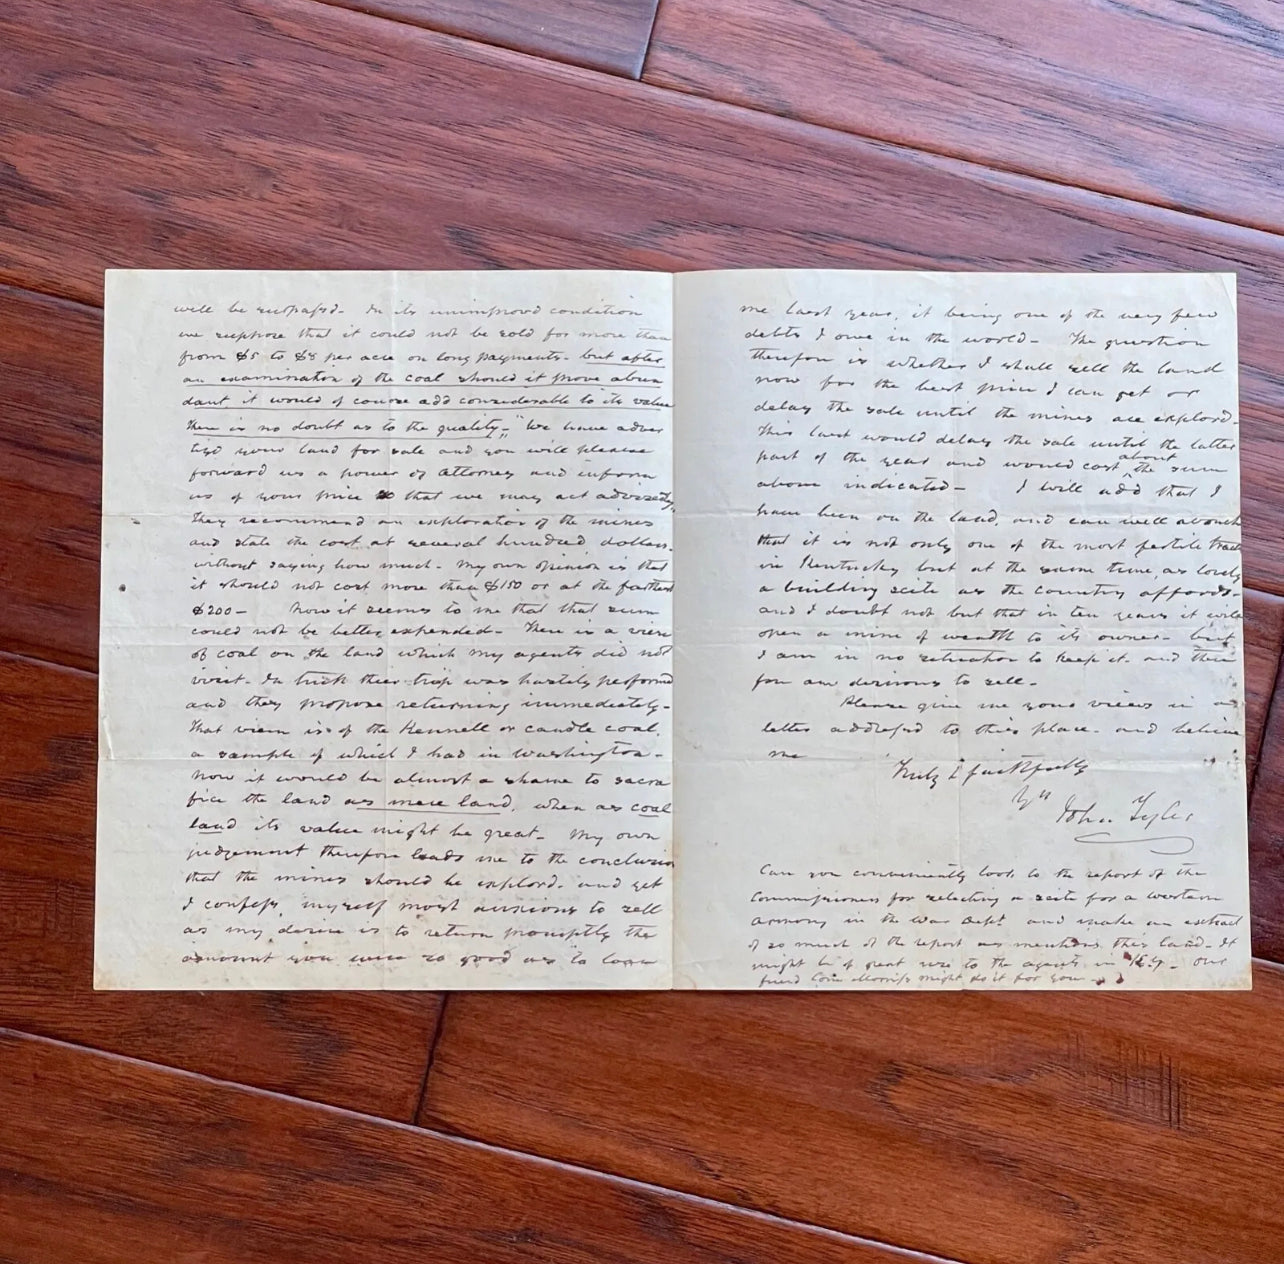 will be surpassed. In its unimproved condition
we suppose that it could not be sold for more than
from $5 to $8 per acre on long payments - but after
an examination of the coal should it prove abun
dant, it would of course add considerable to its value
There is no doubt as to the quality." "We have adver
tisd your land for sale and you will please
forward us a power of attorney and inform
us of your price so that we may act advisedly"
They recommend an exploration of the mines
and state the cost at several hundred dollars.
without saying how much. My own opinion is that
it should not cost more than $150 or at the farthest
$200 - Now it seems to me that that sum
could not be better expended - There is a vien
of coal on the land which my agents did not
visit. In truth their trip was hastily performd
and they propose returning immediately -
That vien is of the Kennell or candle coal,
a sample of which I had in Washington -
Now it would be almost a shame to sacra
fice the land as mere land, when as coal
land its value might be great - My own
judgement therefore leads me to the conclusion
that the mines should be explord. and yet
I confess, myself most anxious to sell
as my desire is to return promptly the
amount you were so good as to loan
me last year, it being one of the very few
debts I owe in the world - The question
therefore is whether I shall sell the land
now for the best price I can get or
delay the sale until the mines are explord.
This last would delay the sale until the latter
part of the year and would cost about the sum
above indicated - I will add that I
have been on the land, and can well avouch
that it is not only one of the most fertile tracts
in Kentucky but at the same time, as lovely
a building scite as the country affords -
and I doubt not but that in ten years it will
open a mine of wealth to its owner - but
I am in no situation to keep it. and there
for am desirous to sell -
Please give me your views in a
letter addressd to this place - and believe
me
Truly & faithfully
Yrs
John Tyler
Can you conveniently look to the report of the
Commissioners for selecting a scite for a western
armory in the War Dept and make an extract
of so much of the report as mentions this land - It
might be of great use to the agents in Ky - Our
friend Com Morriss might do it for you -